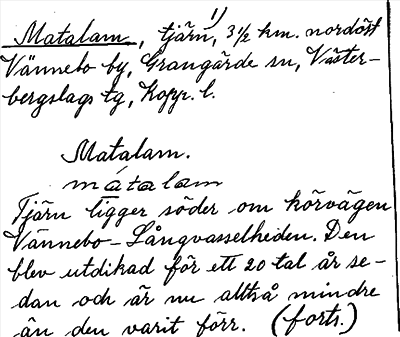 Matalam, tjärn, 1) 3½ km. nordöst
Vännebo by, Grangärde sn, Väster-
bergslags tg, Kopp. l.
Matalam.
mátalam
Tjärn ligger söder om körvägen
Vännebo-Långvasselheden. Den
blev utdikad för ett 20 tal år se-
dan och är nu alltså mindre
än den varit förr. (forts.)